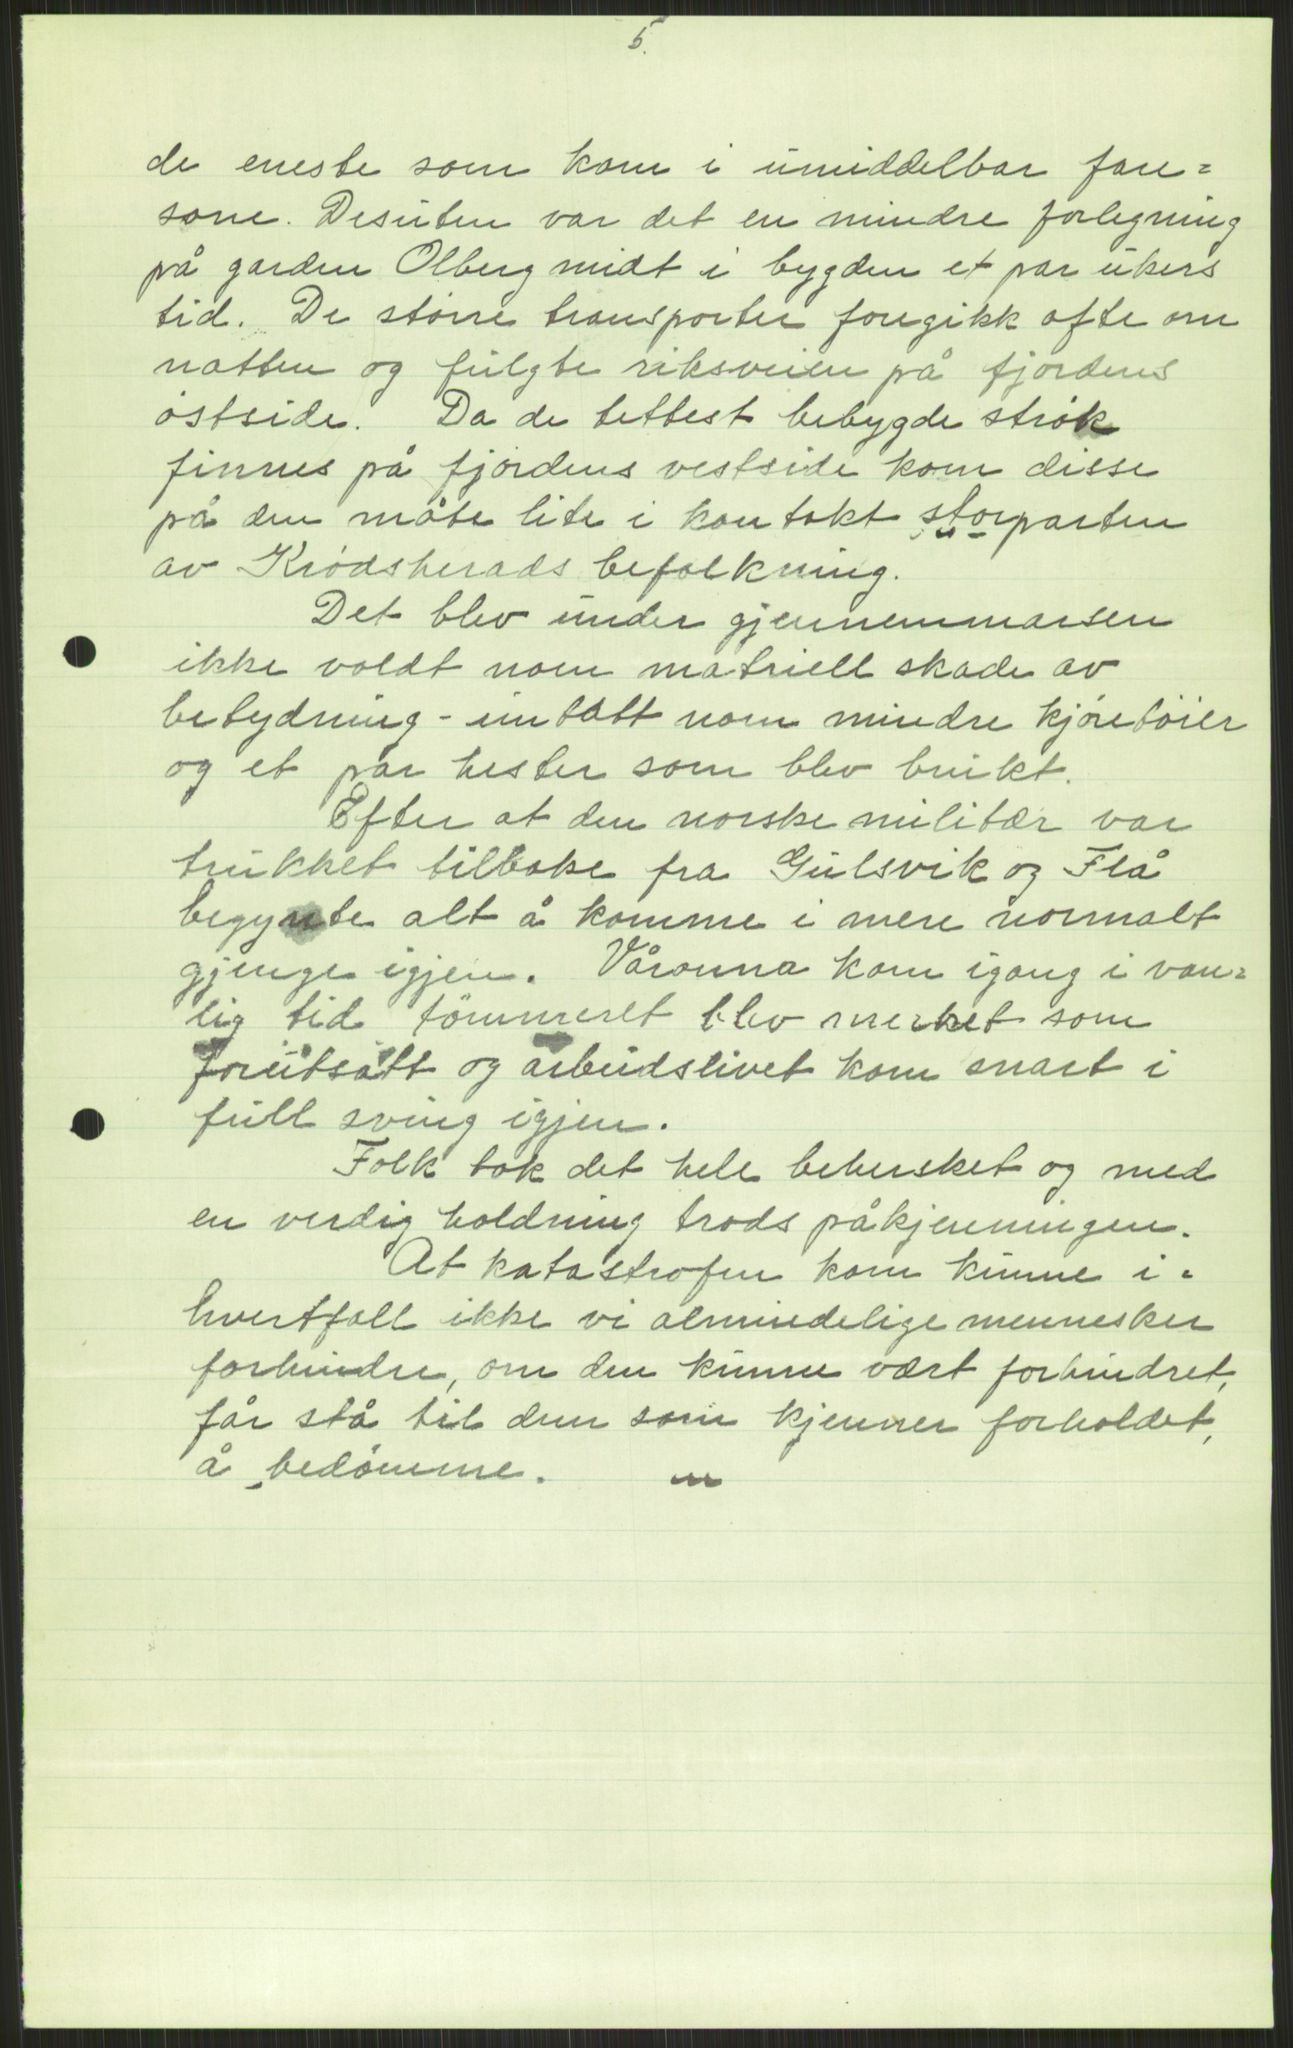 5.
de eneste som kom i umiddelbar fare=
sone. Desuten var det en mindre forlegning
på garden Olberg midt i bygden et par ukers
tid. De større transporter foregikk ofte om
natten og fulgte riksveien på fjordens
østside. Da de tettest bebygde strøk
finnes på fjordens vestside kom disse
på den måte lite i kontakt storparten
av Krødsherads befolkning.
Det blev under gjennemmarsen
ikke voldt noen matriell skade av
betydning - untatt noen mindre kjøretöier
og et par hester som blev brukt.
Efter at den norske militær var
trukket tilbake fra Gulsvik og Flå
begynte alt å komme i mere normalt
gjenge igjen. Våronna kom igang i van=
lig tid tömmeret blev merket som
forutsatt og arbeidslivet kom snart i
full sving igjen.
Folk tok det hele behersket og med
en verdig holdning trods påkjenningen.
At katastrofen kom kunne i=
hvertfall ikke vi almindelige mennesker
forhindre, om den kunne vært forhindret,
får stå til dem som kjenner forholdet,
å bedömme.